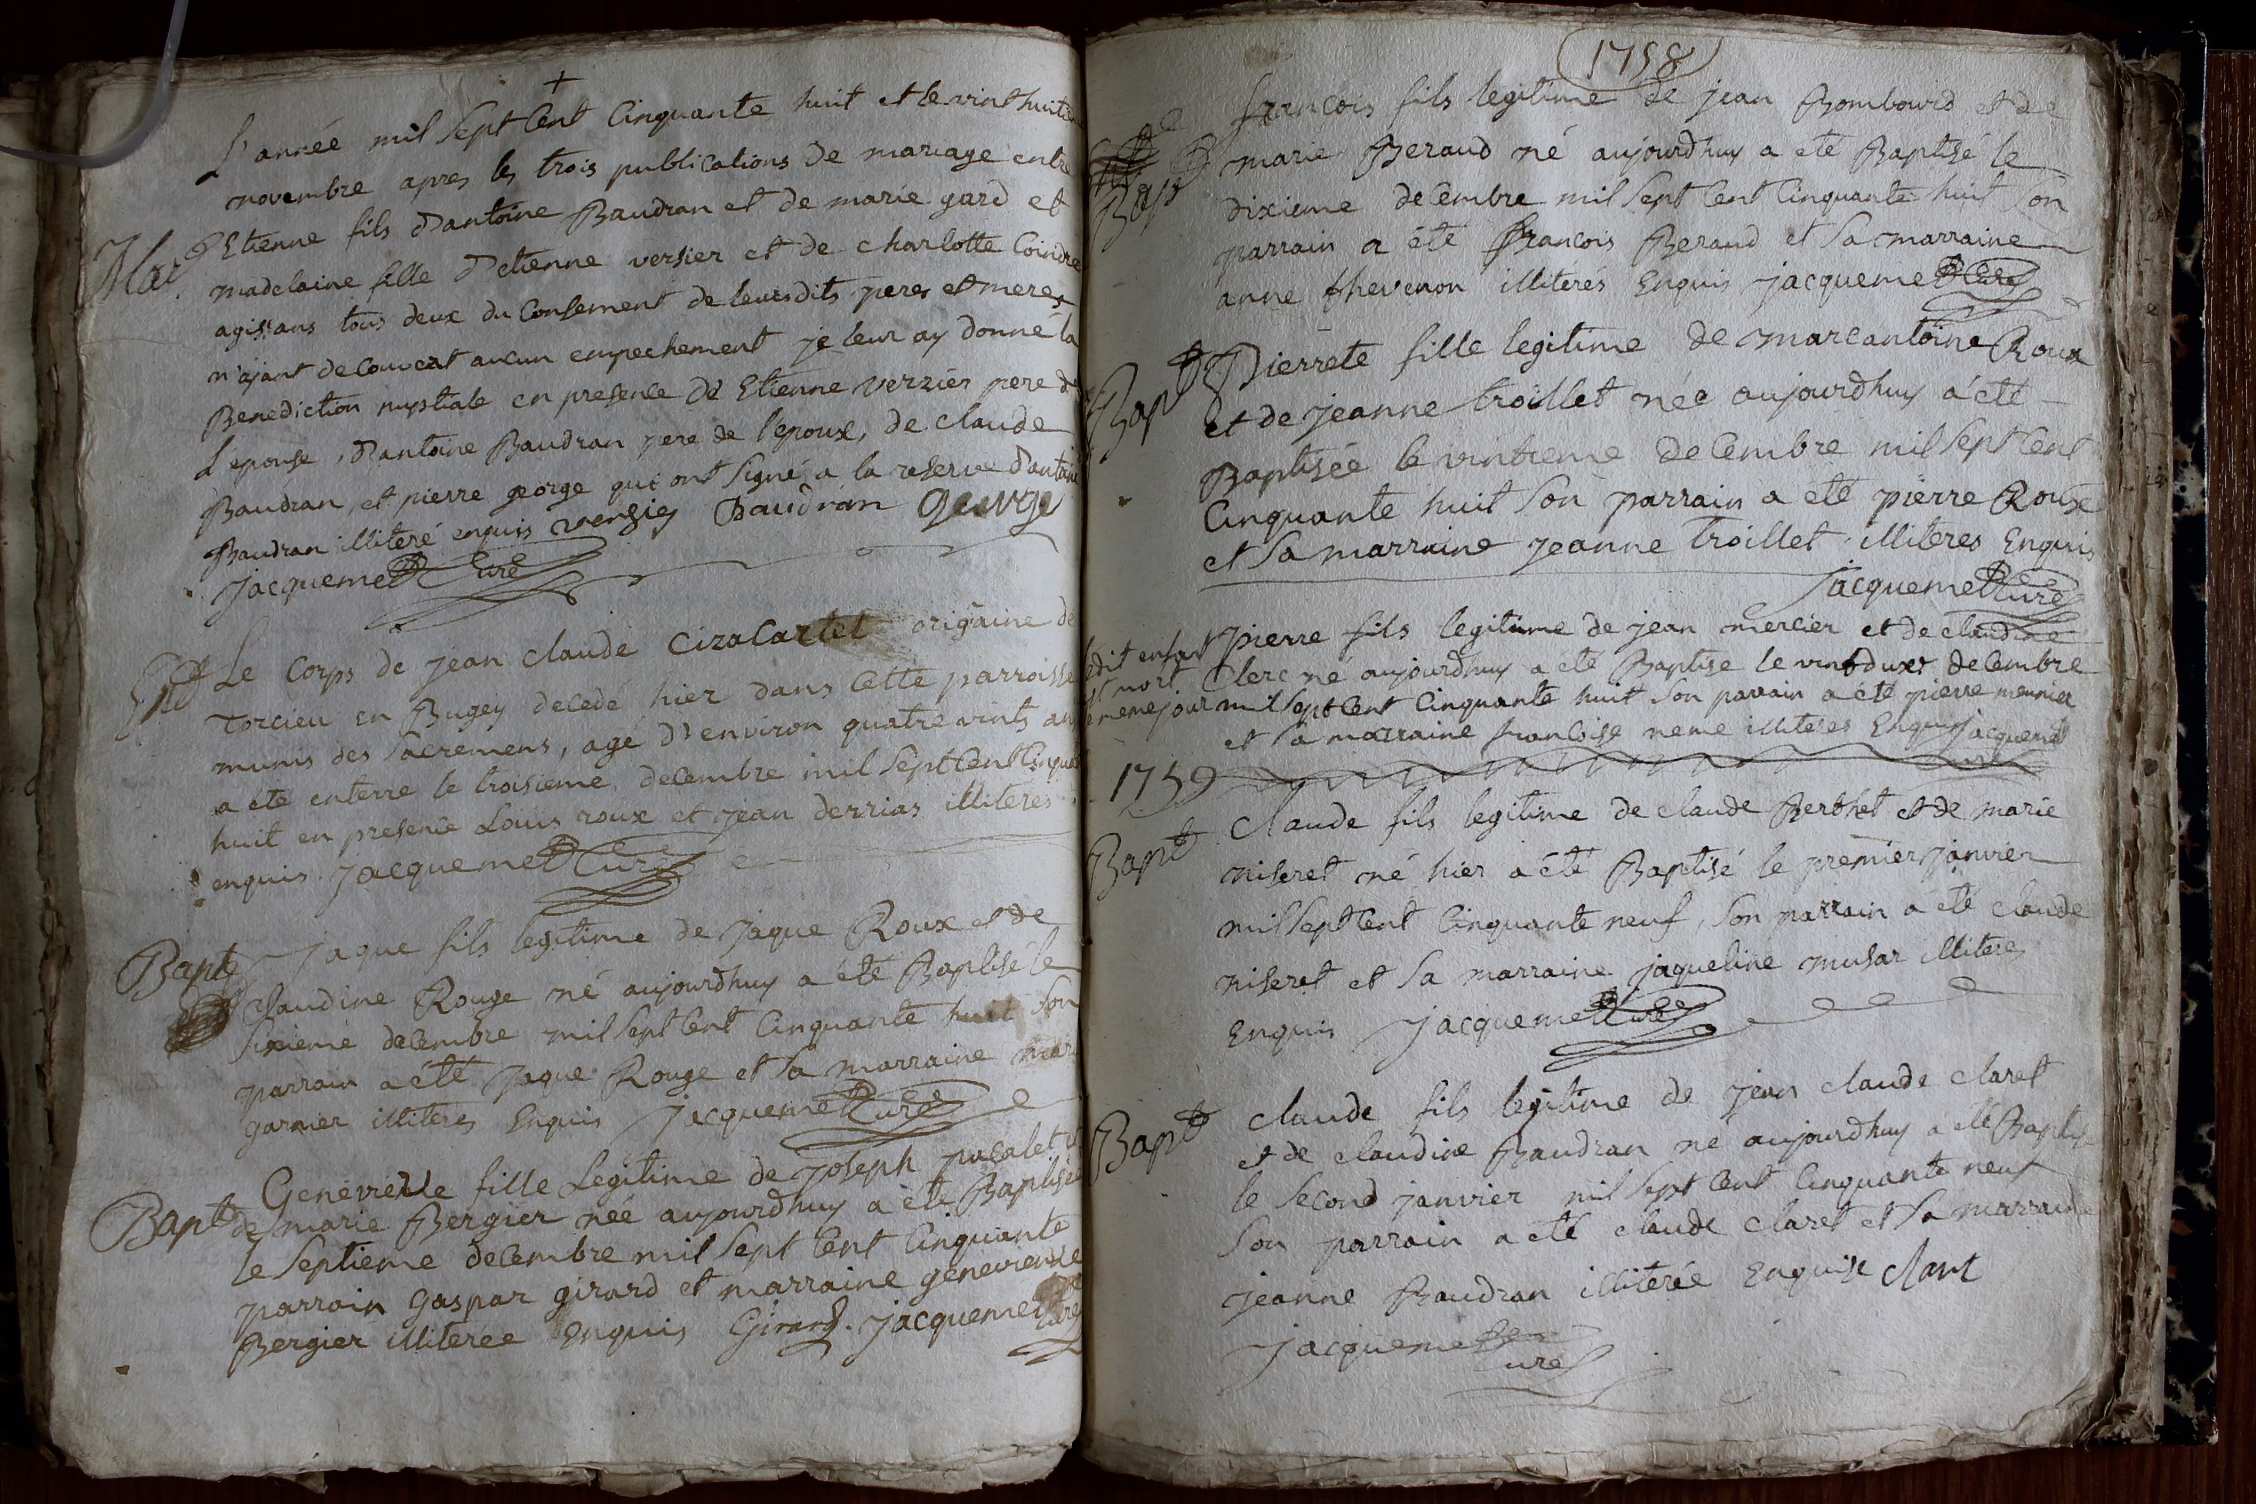 +
L'année mil sept Cent Cinquante huit et le vint huitieme
novembre apres les trois publications de mariage entre
Mar.ge Etienne fils d'antoine Baudran et de marie gard et
madelaine fille d'etienne versier et de charlotte Coindre
agissans tous deux du Consement de leursdits peres et meres
n'ajant decouvert aucun empechement je leur ay donné la
Benediction nuptiale en presence d'Etienne verziés pere de
L'epouse, d'antoine Baudran pere de l'epoux, de claude
Baudran, et pierre george qui ont signé a la reserve d'antoine
Baudran illiteré enquis versies Baudran George
jacquemet Curé
Le Corps de jean claude Cizacartel origaine de
Torcieu en Bugey decedé hier dans Cette parroisse
munis des Sacremens, agé d'environ quatre vints ans
a été enterré le troisieme decembre mil sept Cent Cinquante
huit en presence Louis roux et jean derrias illiteres
enquis jacquemet Curé
Bapte Jaque fils legitime de jaque Roux et de
Claudine Rouge né aujourdhuy a été Baptisé le
Sixieme decembre mil sept Cent Cinquante huit Son
parrain a été jaque Rouge et Sa marraine marie
garnier illiteres Enquis jacquemet Curé
Genevieve fille Legitime de joseph pucalet et
Bapte de marie Bergier née aujourdhuy a été Baptisée
le Septieme decembre mil sept Cent Cinquante
parrain gaspar girard et marraine genevieve
Bergier illiterée Enquis Girard. jacquemet Curé
1758
francois fils legitime de jean Bombourd et de
Bapt marie Beraud né aujourdhuy a eté Baptisé le
dixieme decembre mil sept Cent Cinquante huit Son
parrain a été francois Beraud et Sa marraine
anne thevenon illiterés Enquis jacquemet Curé
Bapt Pierrete fille legitime de marcantoine Roux
et de jeanne troillet née aujourdhuy a été
Baptisée le vintieme decembre mil sept Cent
Cinquante huit Son parrain a eté pierre Roux
et Sa marraine jeanne troillet illiteres Enquis
jacquemet Curé
ledit enfant Pierre fils legitime de jean mercier et de claudine
est mort Clerc né aujourdhuy a eté Baptise le vintduxe decembre
le meme jour mil sept Cent Cinquante huit Son parrain a été pierre meunier
et Sa marraine francoise neme illiteres Enquis jacquemet
1759
Bapt Claude fils legitime de claude Berthet et de marie
niseret né hier a été Baptisé le premier janvier
mil sept Cent Cinquante neuf, Son parrain a eté claude
niseret et Sa marraine jaqueline musar illiteres
Enquis jacquemet Curé
Bapt claude fils legitime de jean claude claret
et de claudine Baudran né aujourdhuy a eté Baptisé
le second janvier mil sept Cent Cinquante neuf
Son parrain a eté claude claret et Sa marraine
jeanne Baudran illiterée Enquise claret
jacquemet
Curé